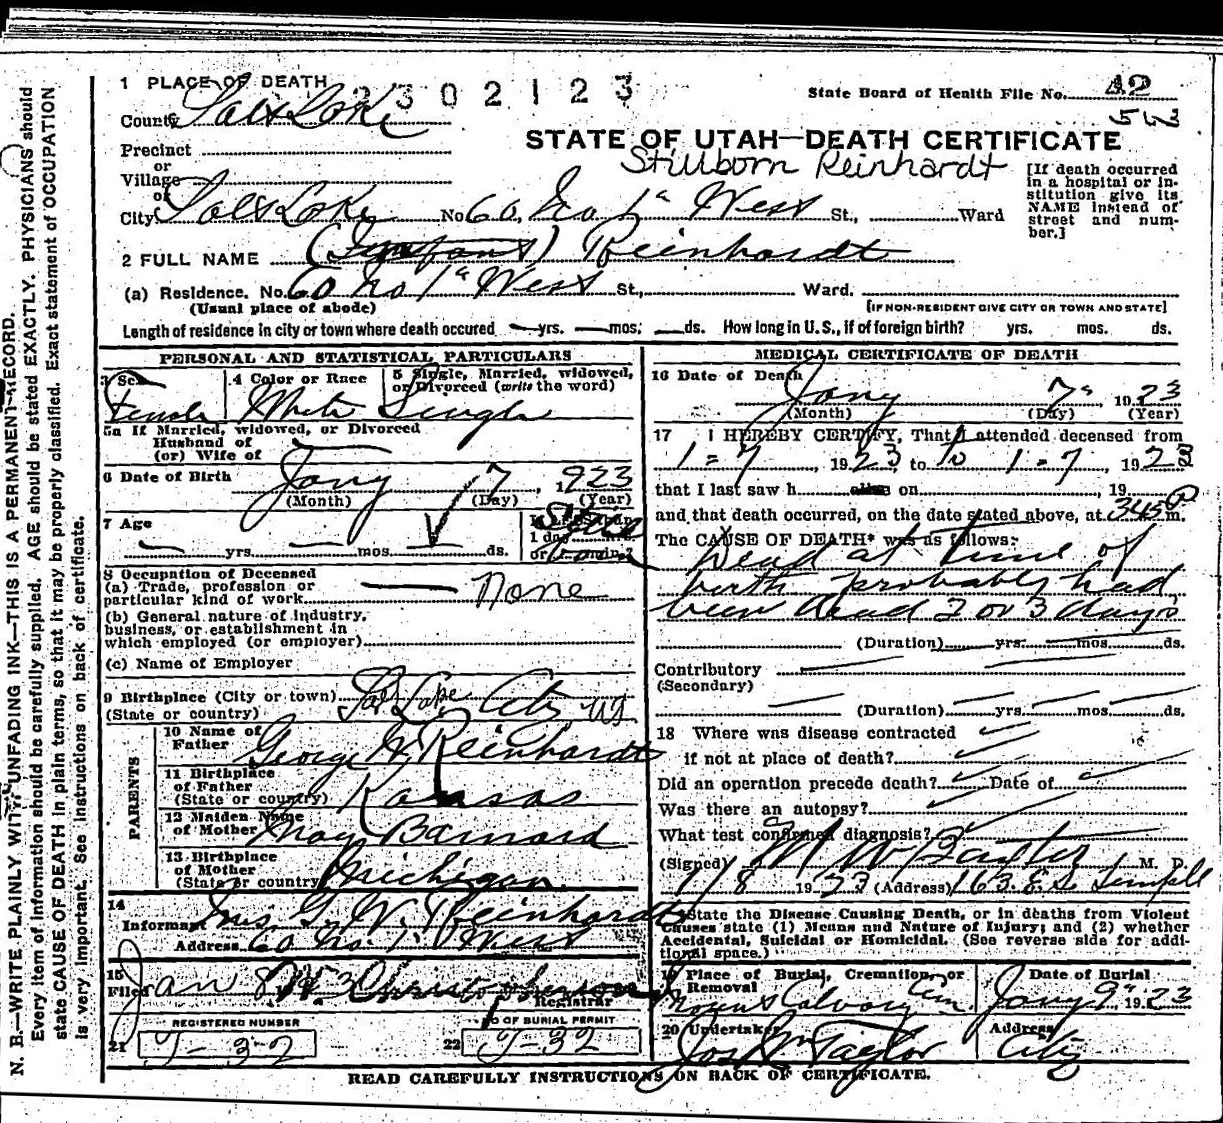 1 PLACE OF DEATH
2302123
State Board of Health File No. 42
County Salt Lake
STATE OF UTAH—DEATH CERTIFICATE
Precinct
or
Village
or
Stillborn Reinhardt
[If death occurred in a hospital or institution give its NAME instead of street and number.]
City Salt Lake No. 60 No 1st West St., Ward
2 FULL NAME (Infant) Reinhardt
(a) Residence. No. 60 No 1st West St., Ward.
(Usual place of abode) [IF NON-RESIDENT GIVE CITY OR TOWN AND STATE]
Length of residence in city or town where death occured yrs. mos. ds. How long in U. S., if of foreign birth? yrs. mos. ds.
PERSONAL AND STATISTICAL PARTICULARS
3 Sex 4 Color or Race 5 Single, Married, widowed, or Divorced (write the word)
Female White Single
5a If Married, widowed, or Divorced
Husband of
(or) Wife of
6 Date of Birth Jany 7, 1923
(Month) (Day) (Year)
7 Age
yrs. mos. ds.
Still Born
8 Occupation of Deceased
(a) Trade, profession or
particular kind of work None
(b) General nature of industry,
business, or establishment in
which employed (or employer)
(c) Name of Employer
9 Birthplace (City or town) Salt Lake City Ut
(State or country)
PARENTS
10 Name of Father George W Reinhardt
11 Birthplace of Father Kansas
(State or country)
12 Maiden Name of Mother May Barnard
13 Birthplace of Mother Michigan
(State or country)
14
Informant Mrs G. W. Reinhardt
Address 60 No. 1st West
15
Filed Jan 8 1923
Registrar
REGISTERED NUMBER NO OF BURIAL PERMIT
21 J-32 22 J-32
MEDICAL CERTIFICATE OF DEATH
16 Date of Death
Jany 7" 1923
(Month) (Day) (Year)
17 I HEREBY CERTIFY, That I attended deceased from
1-7, 1923, to 1-7, 1923
that I last saw h alive on , 19
and that death occurred, on the date stated above, at 345 P m.
The CAUSE OF DEATH* was as follows:
Dead at time of
birth probably had
been dead 2 or 3 days
(Duration) yrs. mos. ds.
Contributory
(Secondary)
(Duration) yrs. mos. ds.
18 Where was disease contracted
if not at place of death?
Did an operation precede death? Date of
Was there an autopsy?
What test confirmed diagnosis?
(Signed) M. D.
1/8 1923 (Address) 163 E. S. Temple
*State the Disease Causing Death, or in deaths from Violent
Causes state (1) Means and Nature of Injury; and (2) whether
Accidental, Suicidal or Homicidal. (See reverse side for addi-
tional space.)
19 Place of Burial, Cremation, or Removal Date of Burial
Mount Calvary Cem Jany 9" 1923
20 Undertaker Address
Jos Wm Taylor City
READ CAREFULLY INSTRUCTIONS ON BACK OF CERTIFICATE.
N. B.—WRITE PLAINLY WITH UNFADING INK—THIS IS A PERMANENT RECORD.
Every item of information should be carefully supplied. AGE should be stated EXACTLY. PHYSICIANS should
state CAUSE OF DEATH in plain terms, so that it may be properly classified. Exact statement of OCCUPATION
is very important. See instructions on back of certificate.